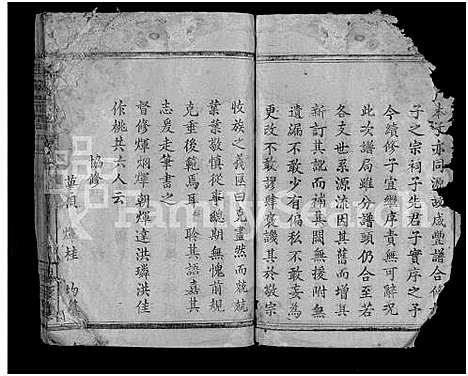 本支亦同源故咸豐譜合修
子之宗祠子先君子實序之予
今續修子宜繼序責無可辭况
此次譜局雖分譜頭仍合至若
各支世系源流因其舊而增其
新訂其訛而補其闕無援附無
遺漏不敢少有偏私不敢妄爲
更改不敢謬肆褒譏其於敬宗
收族之義匪曰克盡然而兢兢
業業敬慎從事總期無愧前規
克垂後範焉耳聆其語嘉其
志爰走筆書之
督修輝炳輝朝輝達洪璘洪佳
作桃共六人云
協修